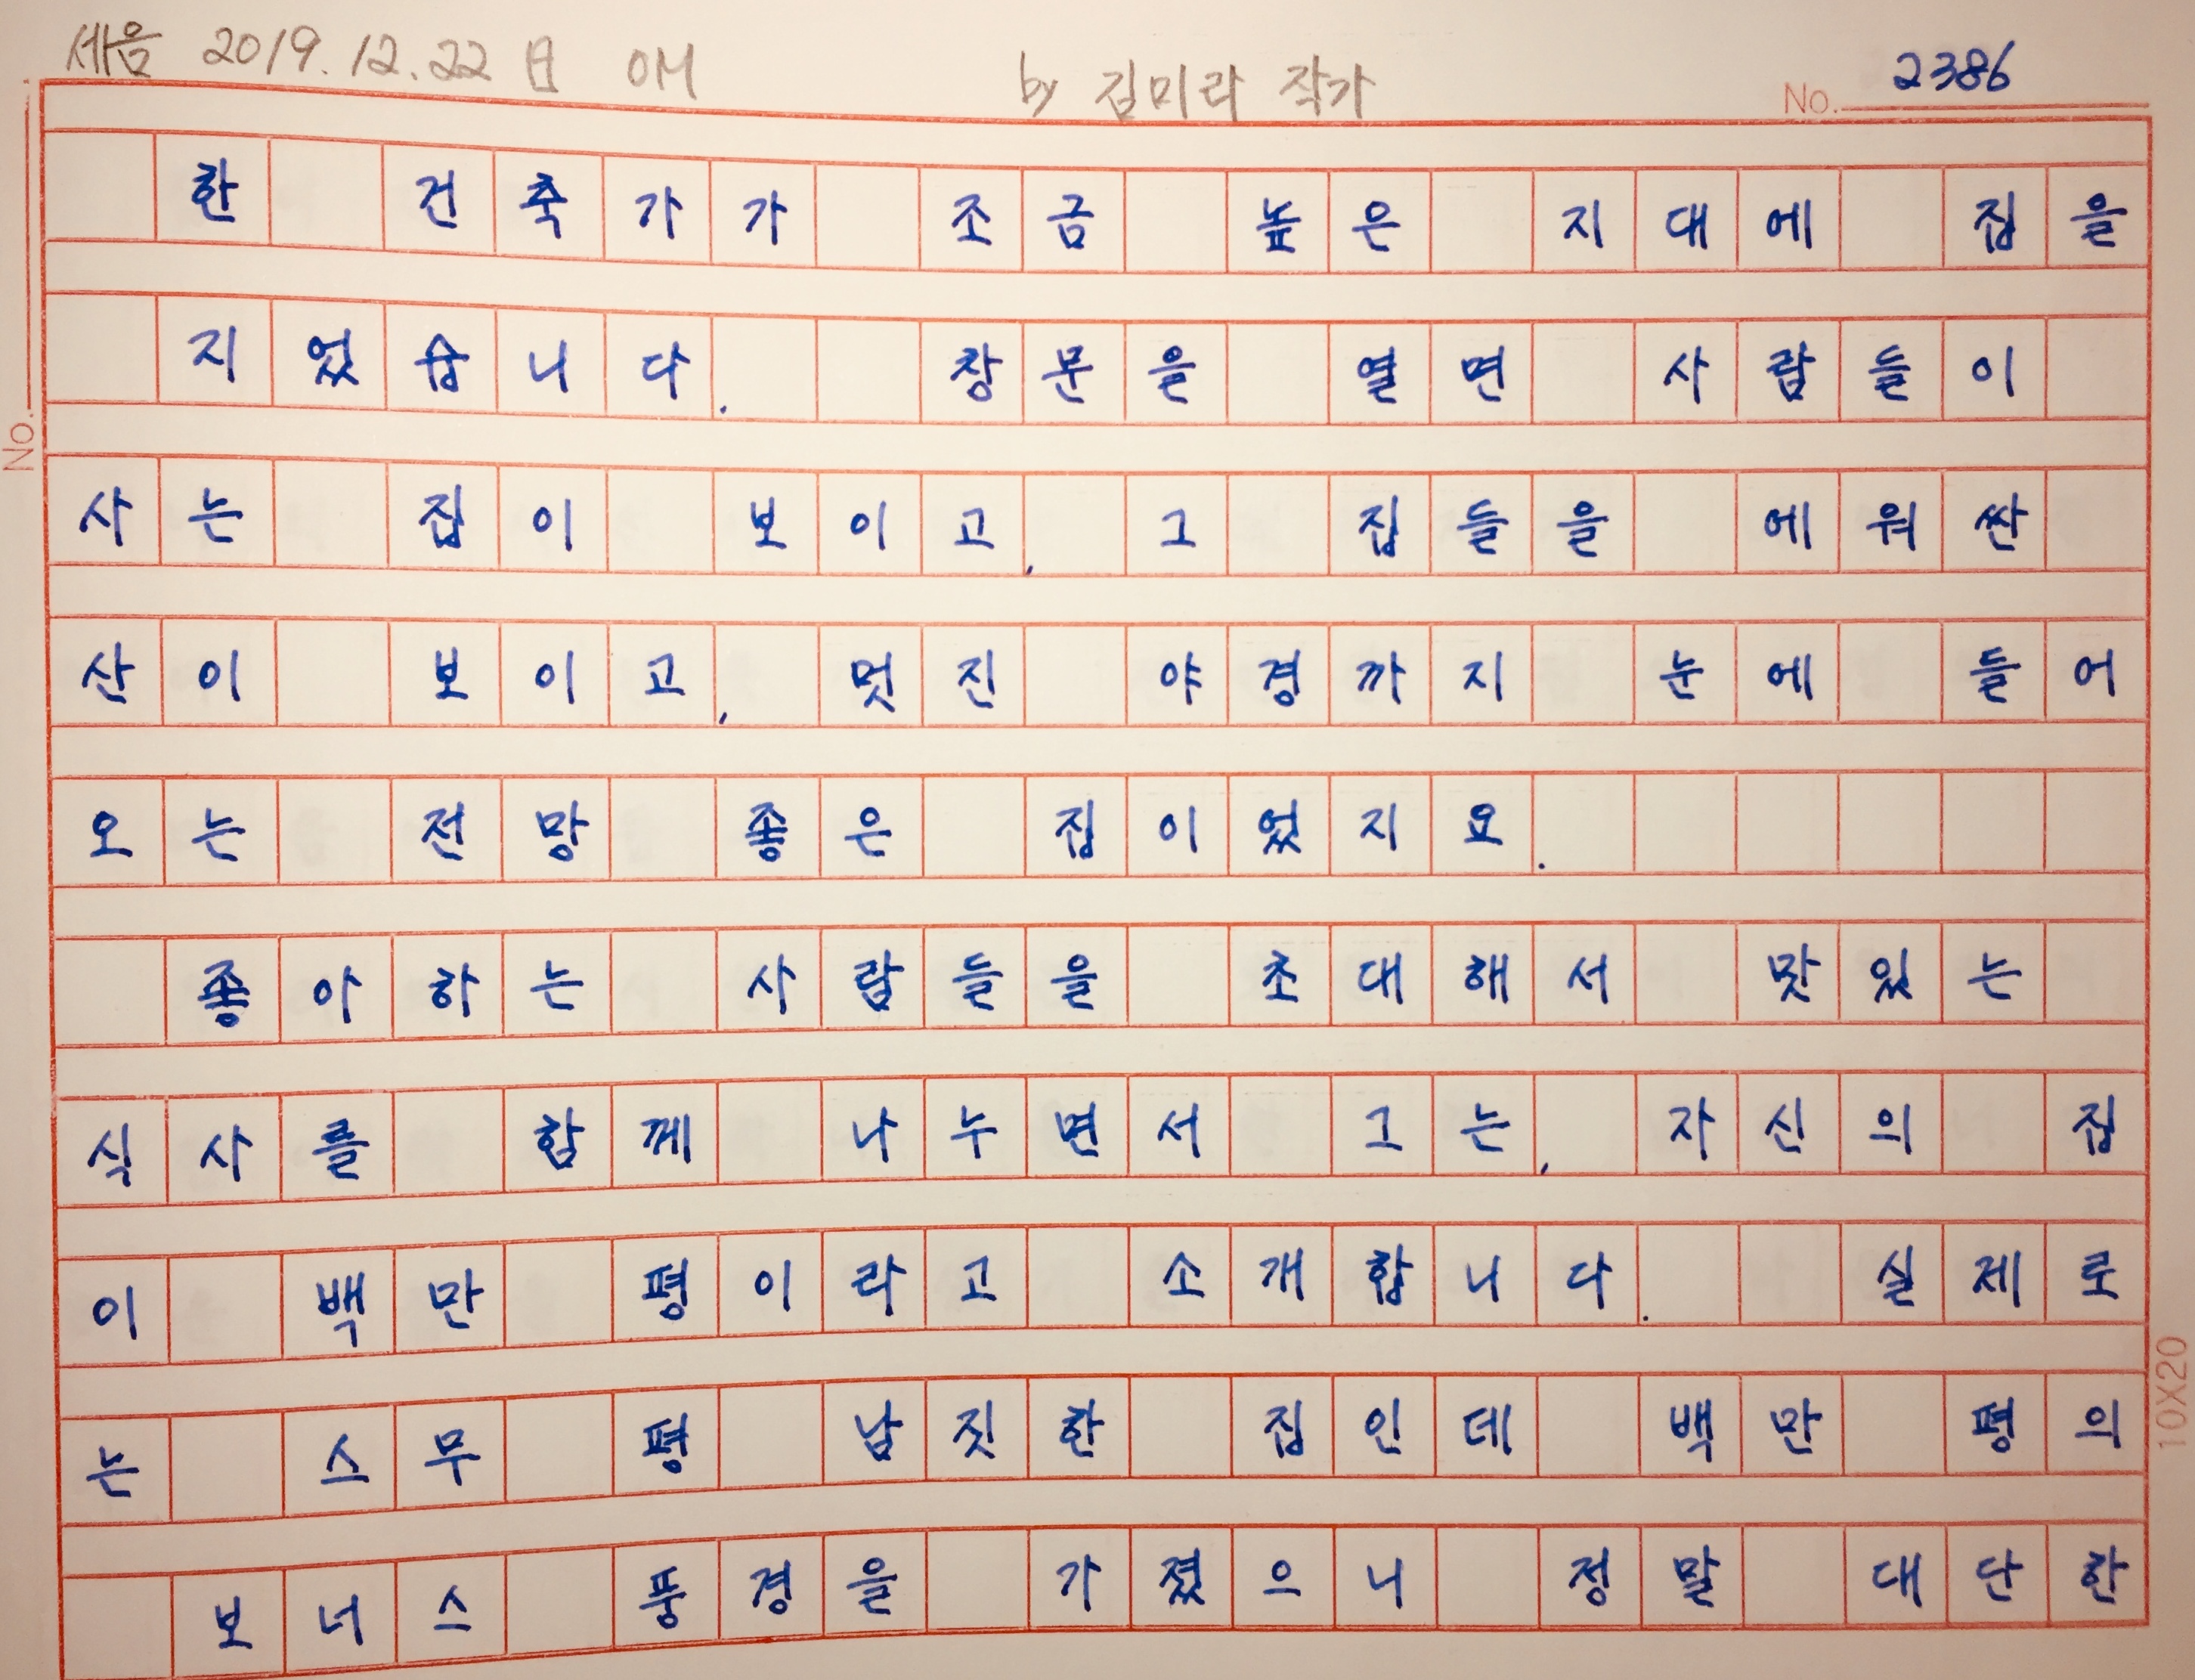 세음 2019.12.22 日 0H by 김미라 작가 No. 2386
한 건축가가 조금 높은 지대에 집을
지었습니다. 창문을 열면 사람들이
사는 집이 보이고, 그 집들을 에워싼
산이 보이고, 멋진 야경까지 눈에 들어
오는 전망 좋은 집이었지요.
좋아하는 사람들을 초대해서 맛있는
식사를 함께 나누면서 그는, 자신의 집
이 백만 평이라고 소개합니다. 실제로
는 스무 평 남짓한 집인데 백만 평의
보너스 풍경을 가졌으니 정말 대단한
No.
10X20